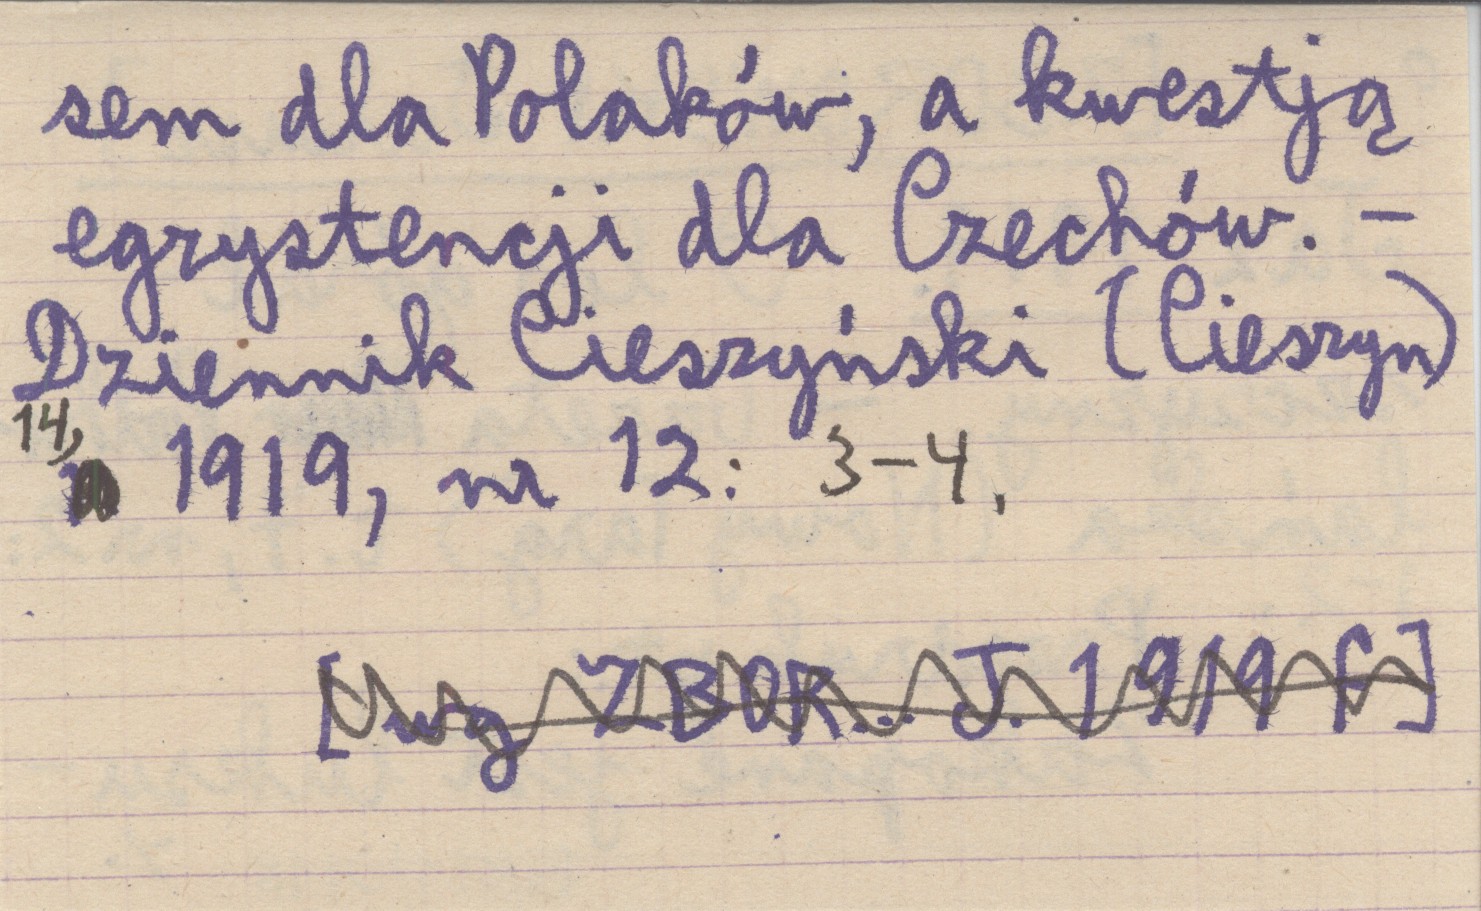 sem dla Polaków, a kwestją
egzystencji dla Czechów. –
Dziennik Cieszyński (Cieszyn)
14,
1919, nr 12: 3–4.
[wg ZBOR.. J. 1919 f]